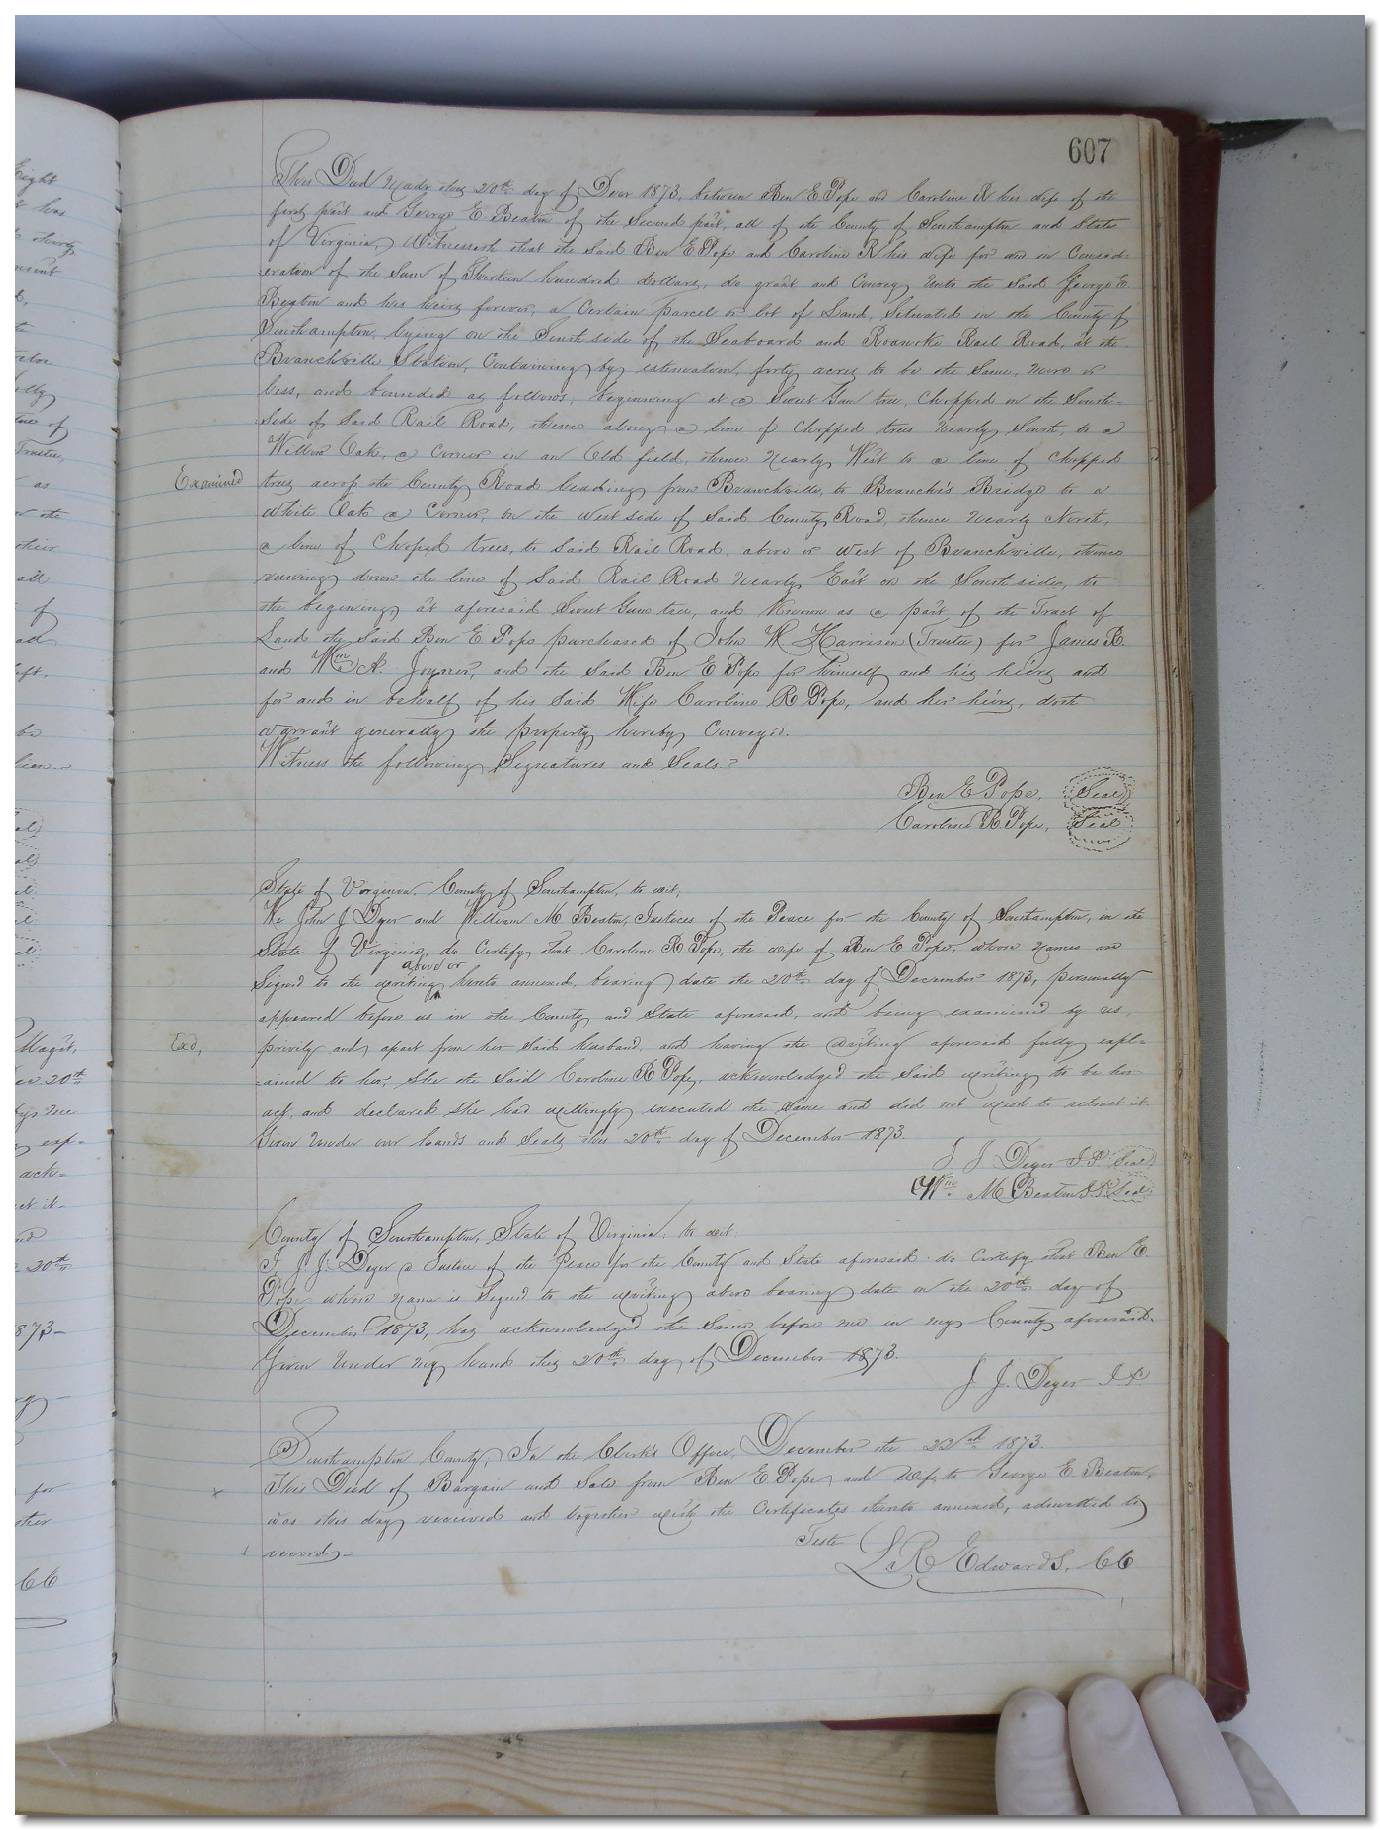 607
This Deed Made this 20th day of Decr 1873, between Ben E Pope and Caroline R his wife of the
first part and George E Beaton of the Second part, all of the County of Southampton and State
of Virginia, Witnesseth that the Said Ben E Pope and Caroline R his wife for and in Consid-
eration of the Sum of hundred dollars, do grant and Convey unto the Said George E
Beaton and his heirs forever, a Certain parcel or lot of Land, Situated in the County of
Southampton, lying on the South side of the Seaboard and Roanoke Rail Road, at the
Branchville Station, Containing by estimation, forty acres to be the Same, more or
less, and bounded as follows, beginning at a Sweet Gum tree, Chopped on the South-
Side of Said Rail Road, thence along a line of Chopped trees Nearly South, to a
Willow Oak, a Corner in an Old field, thence Nearly West to a line of Chopped
Examined
trees across the County Road leading from Branchville, to Branch's Bridge to a
white Oak a Corner, on the West side of Said County Road, thence Nearly North,
a line of Choped trees, to Said Rail Road above or west of Branchville, thence
running down the line of Said Rail Road Nearly East on the South side, to
the beginning at aforesaid Sweet Gum tree, and Known as a part of the Tract of
Land the Said Ben E Pope purchased of John W Harrison (Trustee) for James R.
and Wm A. Joyner, and the Said Ben E Pope for himself and his heirs and
for and in behalf of his Said Wife Caroline R Pope, and her heirs, doth
warrant generally the property hereby Conveyed.
Witness the following Signatures and Seals.
Ben E Pope, Seal
Caroline R. Pope, Seal
State of Virginia County of Southampton, to wit;
We John J Dyer and William M Beaton, Justices of the Peace for the County of Southampton, in the
State of Virginia, do Certify that Caroline R Pope, the wife of Ben E Pope, whose Names are
above or
Signed to the writing hereto annexed, bearing date the 20th day of December 1873, personally
appeared before us in the County and State aforesaid, and being examined by us,
Exd,
privily and apart from her Said husband, and having the writing aforesaid fully expl-
-ained to her, She the Said Caroline R Pope, acknowledged the Said writing to be her
act, and declared She had willingly executed the Same and did not wish to retract it
Given Under our hands and Seals this 20th day of December 1873.
J J Dyer J.P Seal
Wm. M Beaton J.P. Seal
County of Southampton, State of Virginia, to wit.
I, J. J. Dyer a Justice of the Peace for the County and State aforesaid do Certify that Ben E.
Pope whose Name is Signed to the writing above bearing date on the 20th day of
December 1873, has acknowledged the Same before me in my County aforesaid.
Given Under My hand this 20th day of December 1873.
J. J. Dyer J.P.
Southampton County, In the Clerk's Office, December the 1873.
This Deed of Bargain and Sale from Ben E Pope and Wife to George E Beaton,
was this day received and together with the Certificates thereto annexed, admitted to
record.
Teste
L R Edwards, CC